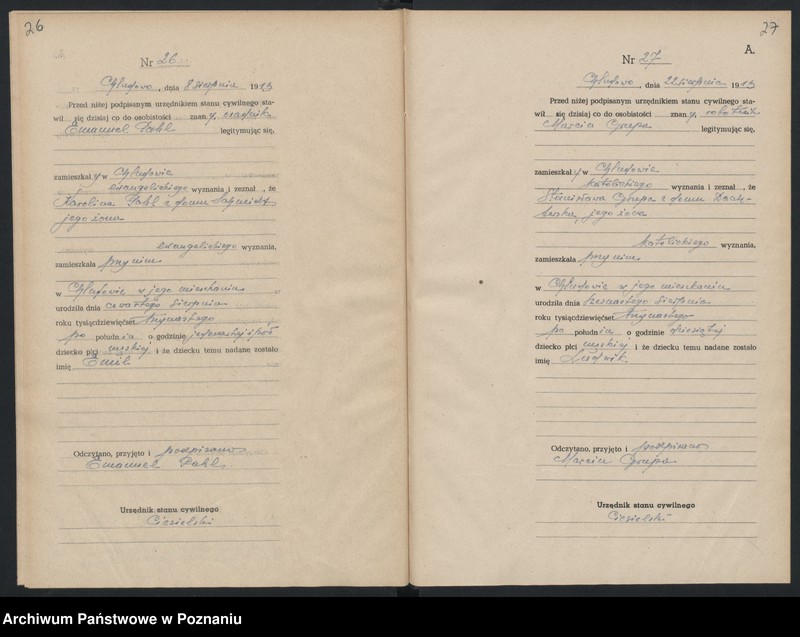 26
Nr 26
Chludowo, dnia 8 sierpnia 1913
Przed niżej podpisanym urzędnikiem stanu cywilnego sta-
wił się dzisiaj co do osobistości znany,
Emanuel legitymując się,
zamieszkały w Chludowie
ewangelickiego wyznania i zeznał, że
Karolina z domu
jego żona
ewangelickiego wyznania,
zamieszkała przy nim
w Chludowie w jego mieszkaniu
urodziła dnia czwartego sierpnia
roku tysiącdziewięćset trzynastego
po południu o godzinie jedenastej i pół
dziecko płci męskiej i że dziecku temu nadane zostało
imię Emil
Odczytano, przyjęto i podpisano
Emanuel
Urzędnik stanu cywilnego
Ciesielski
27
A.
Nr 27
Chludowo, dnia 22 sierpnia 1913
Przed niżej podpisanym urzędnikiem stanu cywilnego sta-
wił się dzisiaj co do osobistości znany, robotnik
Marcin legitymując się,
zamieszkały w Chludowie
katolickiego wyznania i zeznał, że
Stanisława z domu
jego żona
katolickiego wyznania,
zamieszkała przy nim
w Chludowie w jego mieszkaniu
urodziła dnia szesnastego sierpnia
roku tysiącdziewięćset trzynastego
po południu o godzinie dziesiątej
dziecko płci męskiej i że dziecku temu nadane zostało
imię Ludwik
Odczytano, przyjęto i podpisano
Marcin
Urzędnik stanu cywilnego
Ciesielski
Archiwum Państwowe w Poznaniu